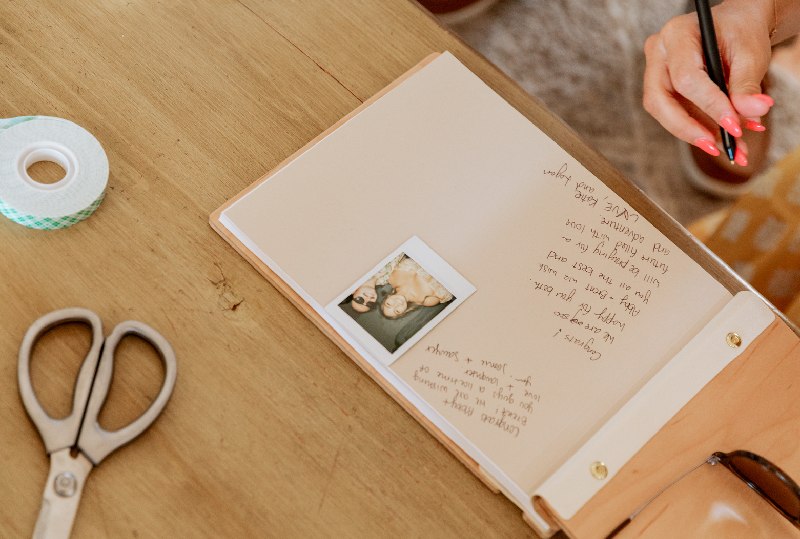 Congrats!
We are so so
happy for you both.
Abby + Brent we wish
you all the best and
will be praying for a
future filled with love
and adventure.
LOVE, Katie and Logan
Congrats Abby +
Brent! wishing
you guys a lifetime of
love + laughter
+ Sawyer